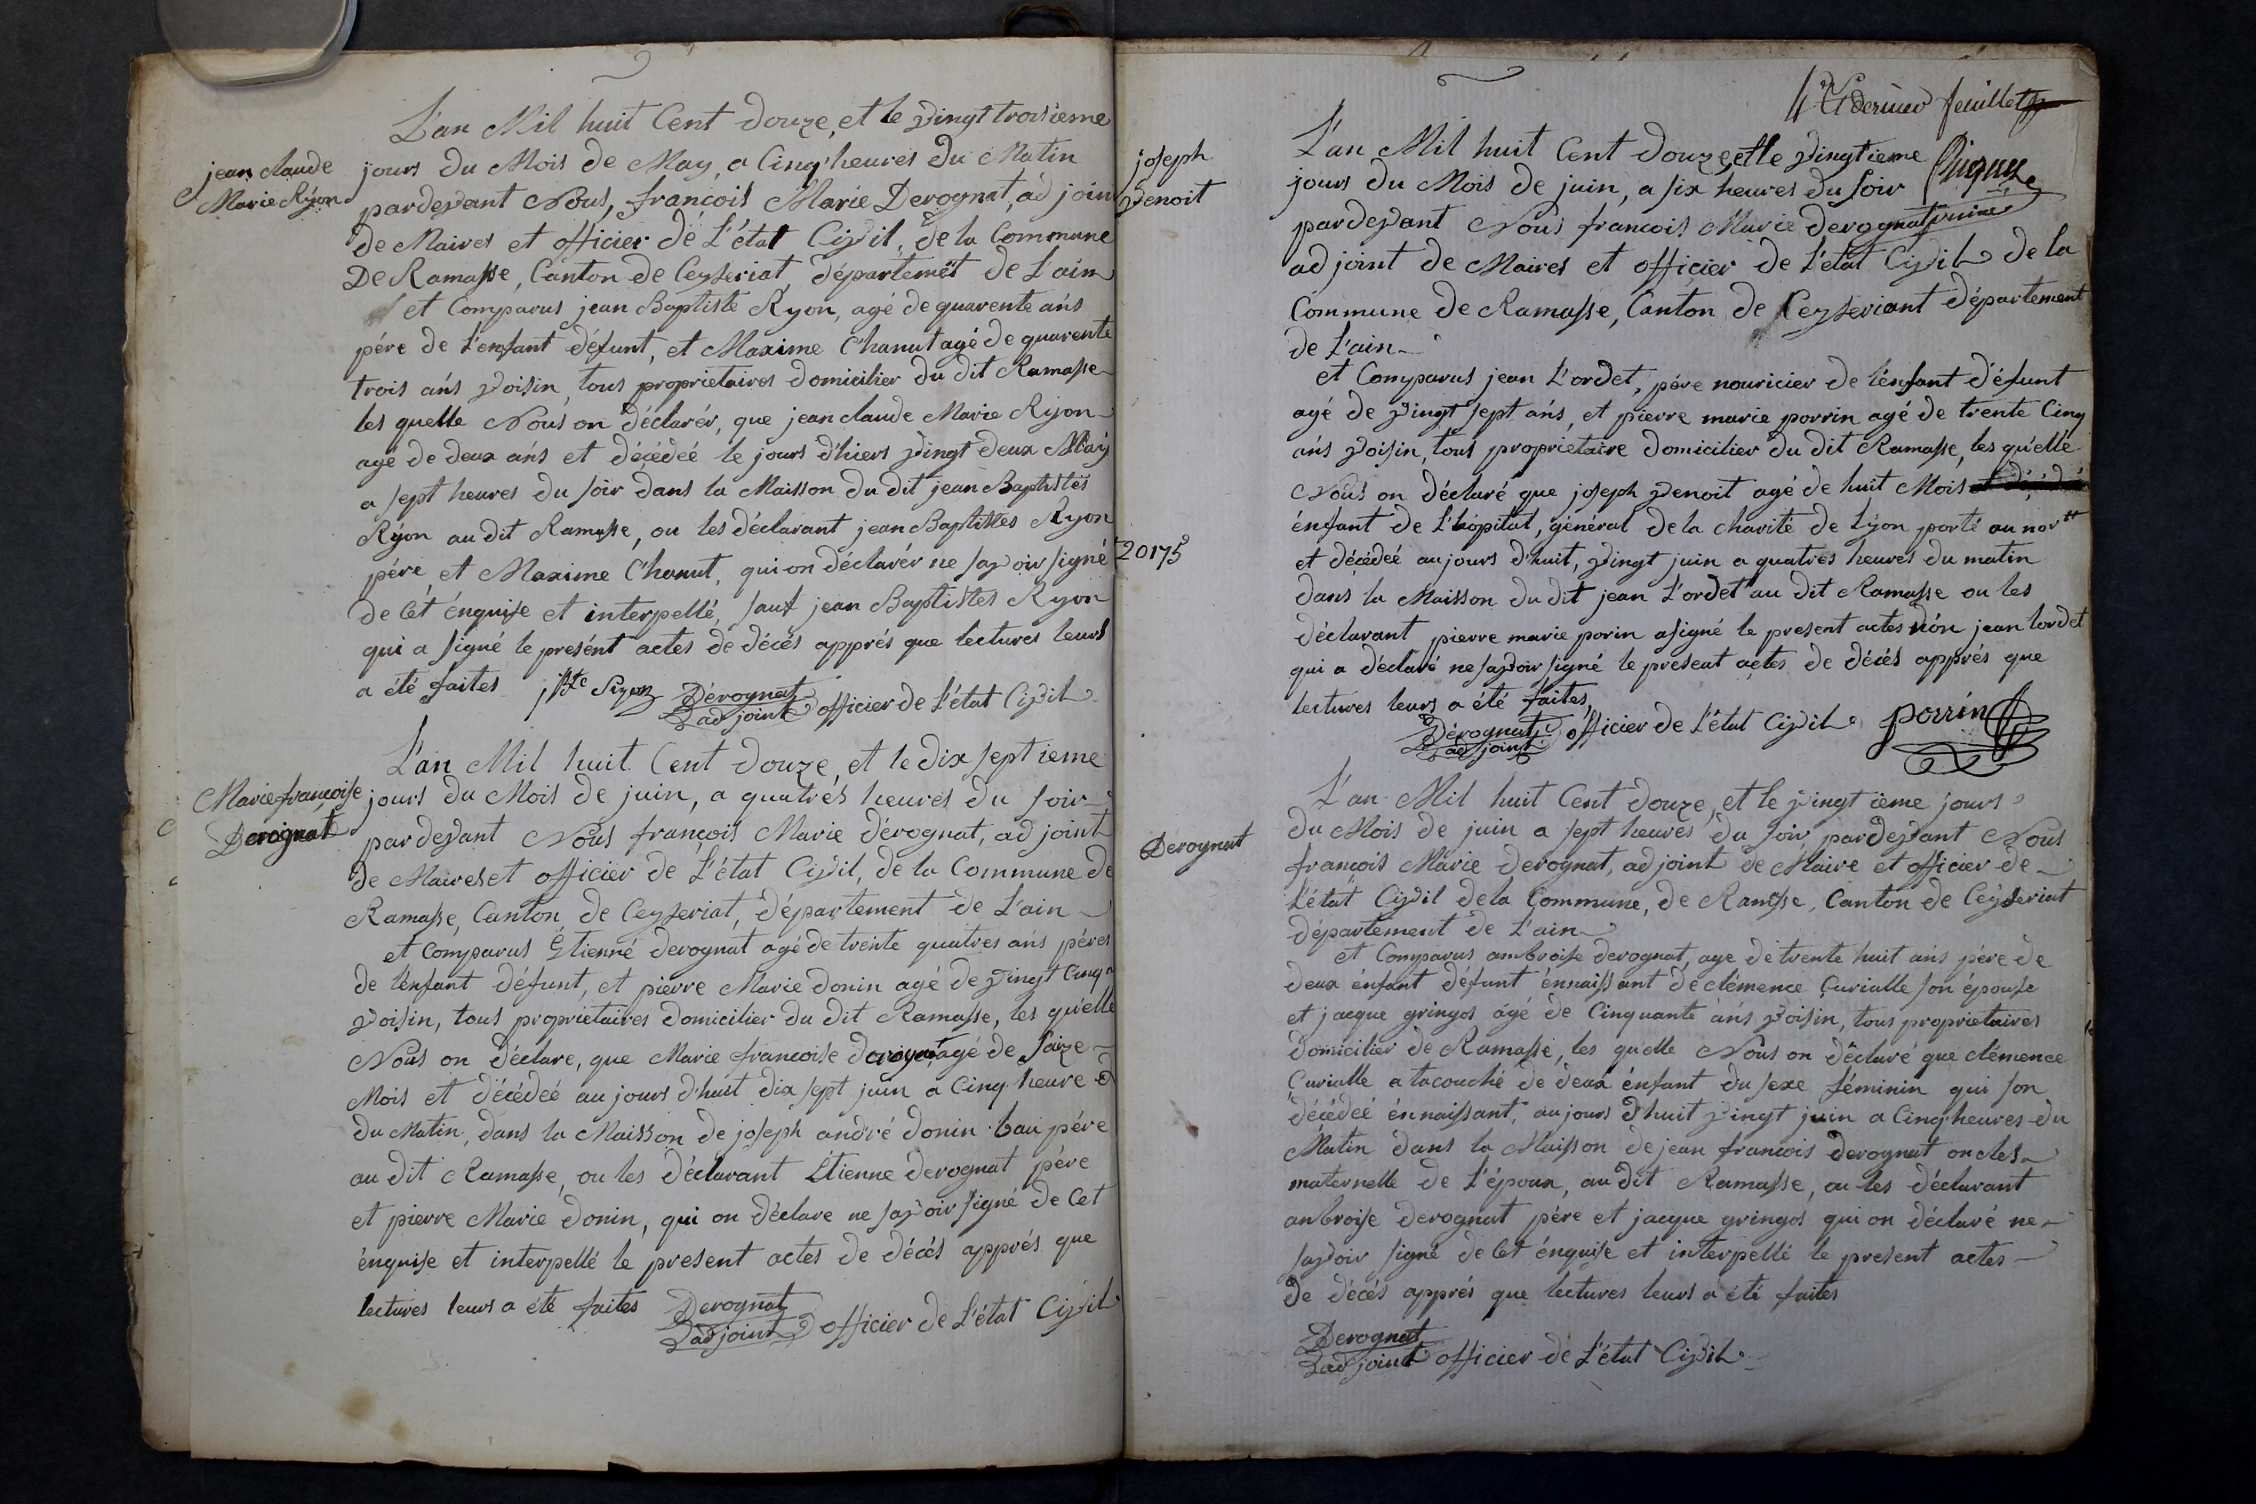 jean claude
Marie Ryon
L'an Mil huit Cent douze, et le vingt troisieme
jours du Mois de May, a Cinq heures du Matin
pardevant Nous, francois Marie Derognat, ad join
de Maires et officier de L'état Civil, de la Commune
De Ramasse, Canton de Ceyseriat, département de L'ain
et Comparus jean Baptiste Ryon, agé de quarente ans
pére de L'enfant défunt, et Maxime Chanut agé de quarente
trois ans voisin, tous proprietaires domicilier du dit Ramasse
les quelle Nous on déclarér, que jean claude Marie Ryon
agé de deux ans et décédeé le jours d'hiers vingt deux May
a sept heures du soir dans la Maisson du dit jean Baptistes
Ryon au dit Ramasse, ou les déclarant jean Baptistes Ryon
pére et Maxime Chanut, qui on déclarér ne savoir signé
de Cét énquise et interpellé, sauf jean Baptistes Ryon
qui a signé le présent actes de décés apprés que lectures leurs
a été faites
Dérognat
ad joint officier de L'état Civil
Marie francoise
Derognat
L'an Mil huit Cent douze, et le dix sept ieme
jours du Mois de juin, a quatres heures du soir
pardevant Nous françois Marie dérognat, ad joint
de Maires et officier de L'état Civil, de la Commune de
Ramasse, Canton de Ceyseriat, département de L'ain
et Comparus Étienne derognat agé de trente quatres ans péres
de l'énfant défunt, et pierre Marie donin agé de vingt Cinq
voisin, tous proprietaires domicilier du dit Ramasse, les quelle
Nous on déclare, que Marie francoise derognat agé de saize
Mois et décédeé au jours d'huit dix sept juin a Cinq heure
du Matin, dans la Maisson de joseph andré donin bau pére
au dit Ramasse, ou les déclarant Étienne derognat pére
et pierre Marie donin, qui on déclare ne savoir signé de Cet
énquise et interpellé le present actes de décés apprés que
lectures leurs a été faites
Derognat
ad joint officier de L'état Civil
4 et dernier feuillet
joseph
venoit
L'an Mil huit Cent douze, et le vingtieme
jours du Mois de juin, a six heures du soir
pardevant Nous francois Marie derognat
ad joint de Maires et officier de L'état Civil de la
Commune de Ramasse, Canton de Ceyseriant département
de L'ain
et Comparus jean L'ordet, pére nouricier de l'énfant défunt
agé de vingt sept ans, et pierre marie porrin agé de trente Cinq
ans voisin, tous proprietaire domicilier du dit Ramasse, les quelle
Nous on déclaré que joseph venoit agé de huit Mois
énfant de L'hopital, général de la charité de Lyon porté au no
20175
et décédeé au jours d'huit, vingt juin a quatres heures du matin
dans la Maisson du dit jean L'ordet au dit Ramasse ou les
déclarant pierre marie porin a signé le present actes nón jean lordet
qui a déclaré ne savoir signé le present actes de décés apprés que
lectures leurs a été faites,
Dérognat
ad joint officier de L'état Civil porrin
Derognat
L'an Mil huit Cent douze, et le vingt ieme jours
du Mois de juin a sept heures du soir, pardevant Nous
françois Marie derognat, ad joint de Maire et officier de
L'état Civil de la Commune, de Ramasse, Canton de Ceyseriat
département de L'ain
et Comparus ambroise derognat, age de trente huit ans pére de
deux énfant défunt énnaissant de clémence Curialle son épouse
et jacque gringos ágé de Cinquante àns voisin, tous proprietaires
domicilier de Ramasse, les quelle Nous on déclaré que clémence
Curialle a tacouché de deux énfant du sexe féminin qui son
décédeé énnaissant, au jours d'huit vingt juin a Cinq heures du
Matin dans la Maisson de jean francois derognat oncles
maternelle de L'époux, au dit Ramasse, ou les déclarant
anbroise derognat pére et jacque gringos qui on déclaré ne
savoir signé de Cet énquise et interpellé le present actes
de décés apprés que lectures leurs a été faites
Derognat
ad joint officier de L'état Civil